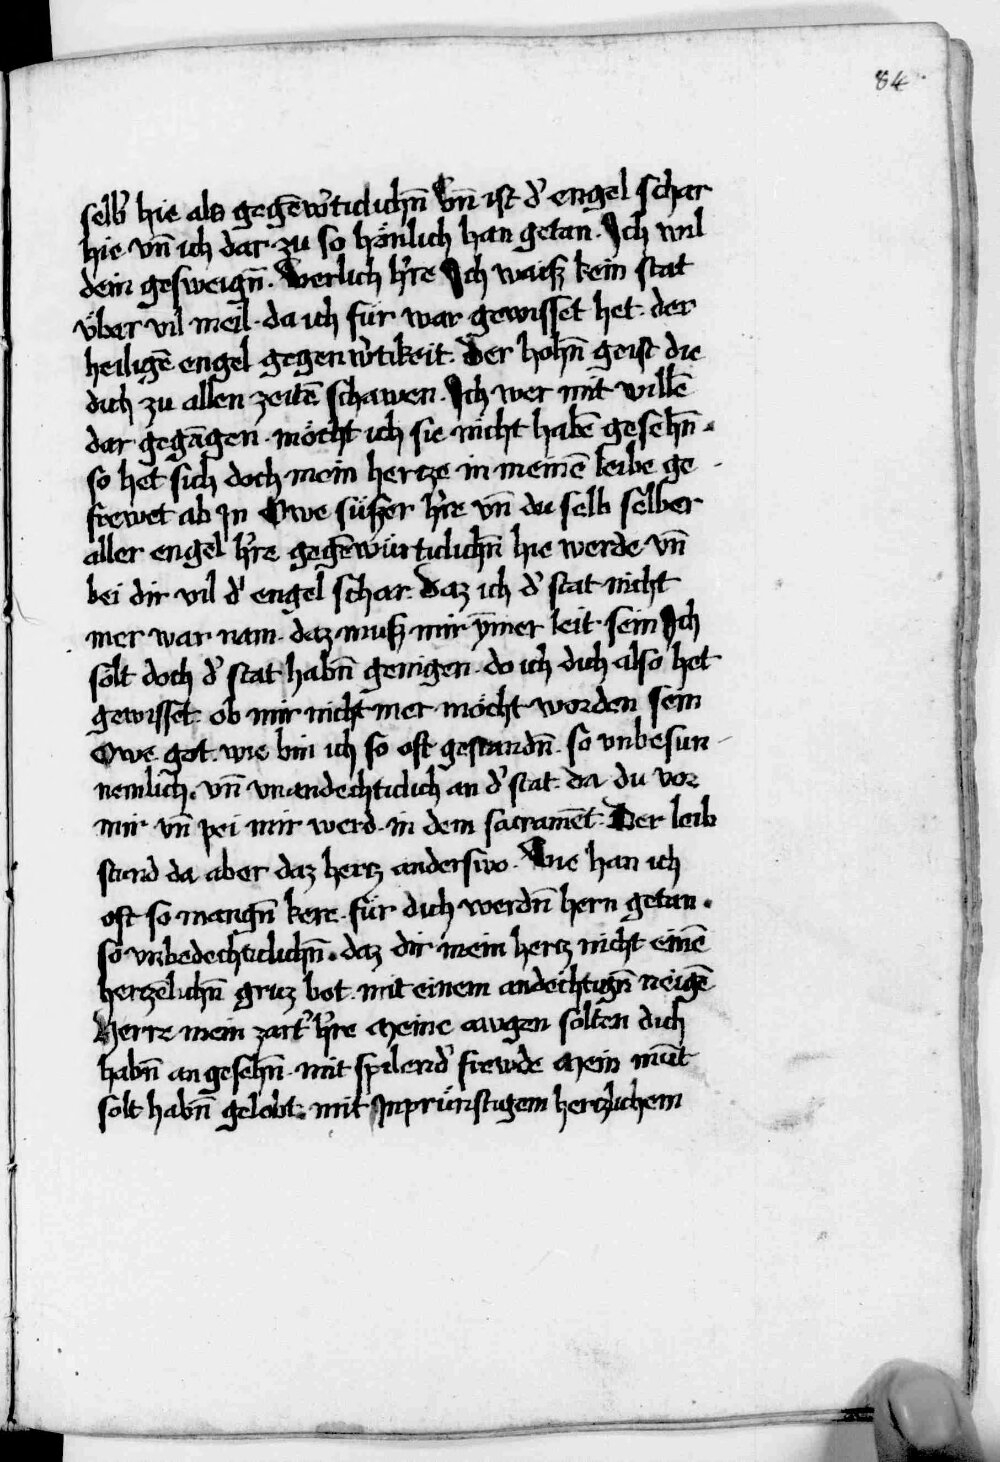 84
selb' hie als gegēw'ticlichn̄ Vn̄ ist d' engel schar
hie vn̄ ich dar zu so hönlich han getan. Ich wil
dein gesweign̄. Werlich h're Ich waiß kein stat
vͤber vil meil. da ich fuͤr war gewisset het. der
heiligē engel gegenw'tikeit. Der hohn̄ geist die
dich zu allen zeitē schawen. Ich wer mit willē
dar gegāgen. moͤcht ich sie nicht habē gesehn̄.
so het sich doch mein hertze in meinē leibe ge-
frewet ab In Owe suͤßer h're vn̄ du selb selber
aller engel h're gegēwuͤrticlichn̄ hie werde vn̄
bei dir vil d' engel schar. Daz ich d' stat nicht
mer war nam. daz muß mir ȳmer leit sein Ich
solt doch d' stat habn̄ genigen. do ich dich also het
gewisset. ob mir nicht mer moͤcht worden sein
Owe got. wie bin ich so oft gestandn̄. so vnbesun-
nenlich. vn̄ vnandechticlich an d' stat. da du vor
mir vn̄ pei mir werd. in dem sacramēt. Der leib
stund da aber daz hertz anderswo. Wie han ich
oft so mangn̄ kere. fuͤr dich werdn̄ hern getan.
so vnbedechticlichn̄. daz dir mein hertz nicht einē
hertzēlichn̄ gruz bot. mit einem andechtign̄ neigē
Herre mein zart' h're Meine awgen solten dich
habn̄ angesehn̄. mit spilend' frewde Mein mūt
solt habn̄ gelobt. mit Inpruͤnstigem hertzlichem